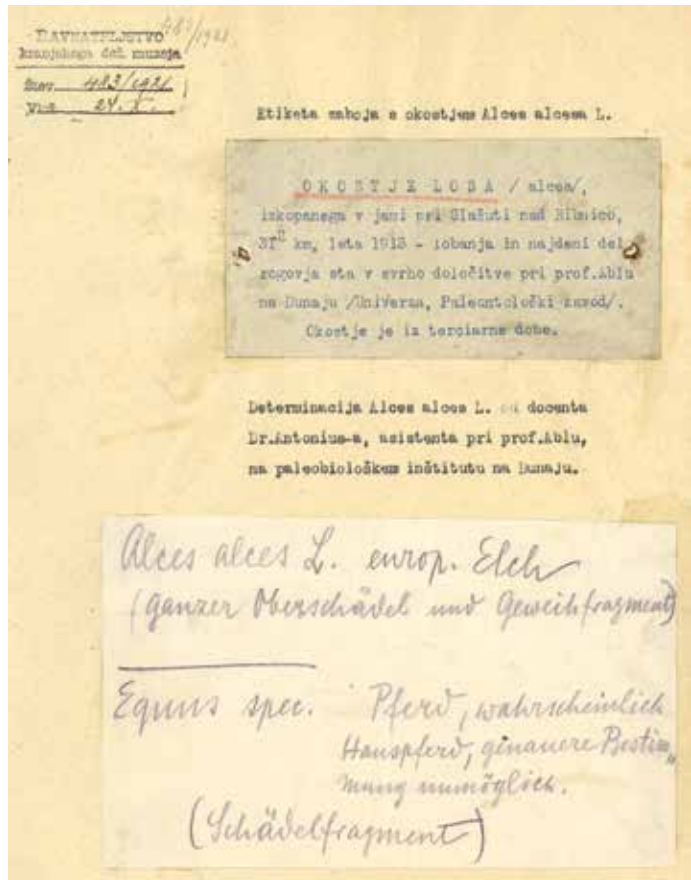 RAVNATELJSTVO
kranjskega dež. muzeja
483/1921
štev. 483/1921
24. X.
Etiketa zaboja s okostjem Alces alcesa L.
OKOSTJE LOSA / alces/,
izkopanega v jami pri Glažuti nad Ribnico,
km, leta 1913 - lobanja in najdeni del
rogovja sta v svrho določitve pri prof.Ablu
na Dunaju /Univerza, Paleontološki zavod/.
Okostje je iz terciarne dobe.
Determinacija Alces alces L. od docenta
Dr.Antonius-a, asistenta pri prof.Ablu,
na paleobiološkem inštitutu na Dunaju.
Alces alces L. europ. Elch
(ganzer Oberschädel und Geweihfragment)
Equus spec. Pferd, wahrscheinlich
Hauspferd, genauere Bestim„
mung unmöglich.
(Schädelfragment)